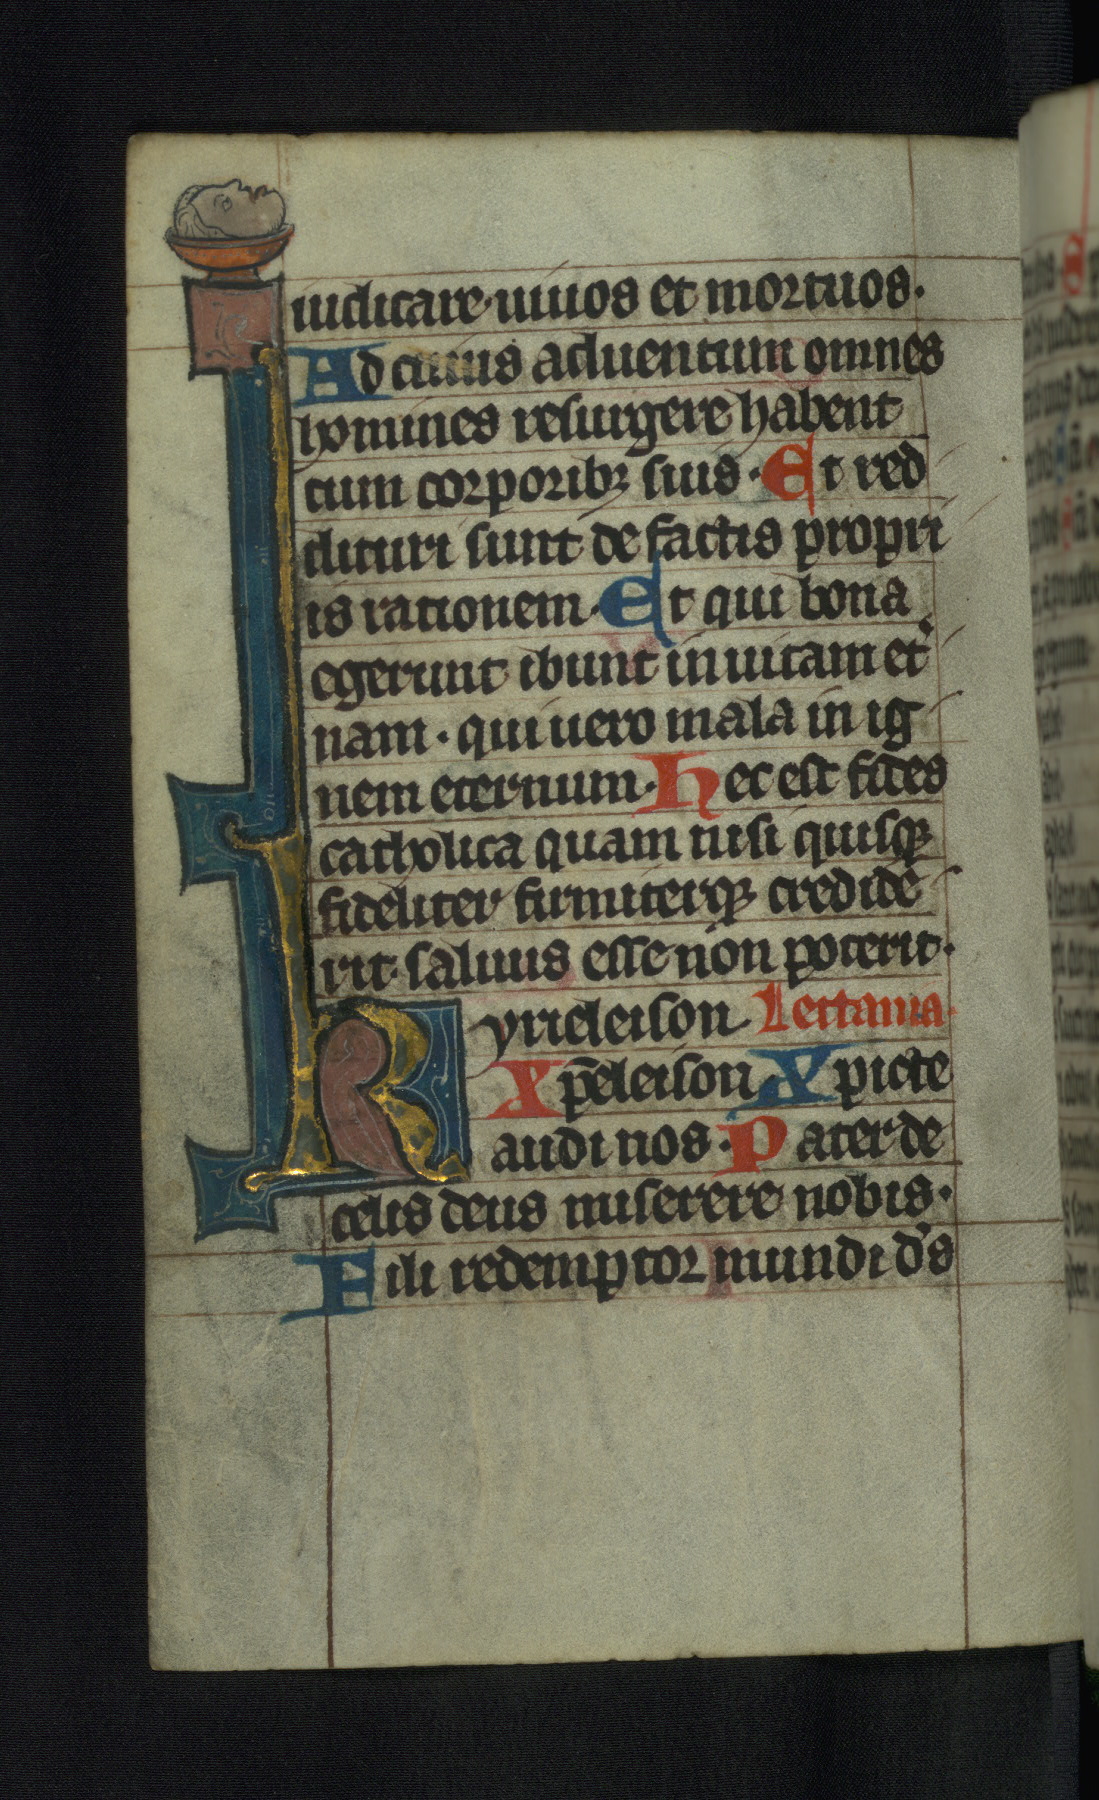 iudicare uiuos et mortuos.
Ad cuius aduentum omnes
homines resurgere habent
cum corporibꝫ suis. Et red
dituri sunt de factis propri
is rationem. Et qui bona
egerunt ibunt in uitam et̾
nam. qui uero mala in ig
nem eternum. Hec est fides
catholica quam nisi quisqꝫ
fideliter firmiterqꝫ credide
rit saluus esse non poterit.
Kyrieleison Lettania
Xp̄eleison. Xpicte
audi nos. Pater de
celis deus miserere nobis.
Fili redemptor mundi d̾s